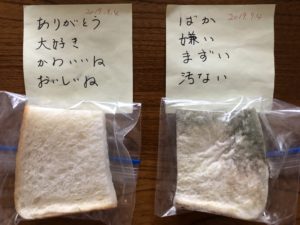 2019.9.4
ありがとう
大好き
かわいいね
おいしいね
2019.9.4
ばか
嫌い
まずい
汚ない